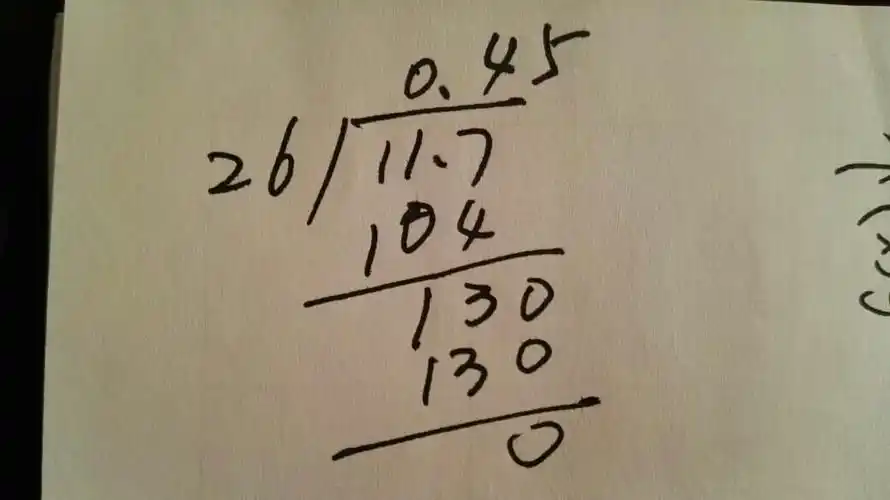 0.45
26/11.7
104
130
130
0